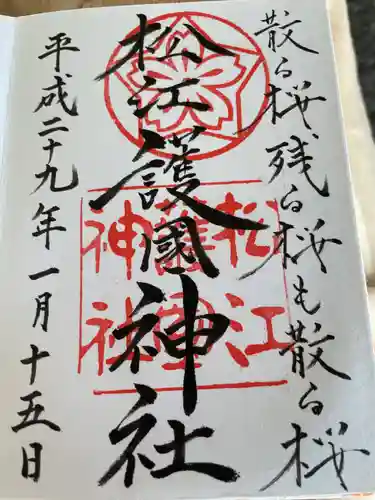 散る桜、残る桜も散る桜
松江護國神社
松江
護國
神社
平成二十九年一月十五日